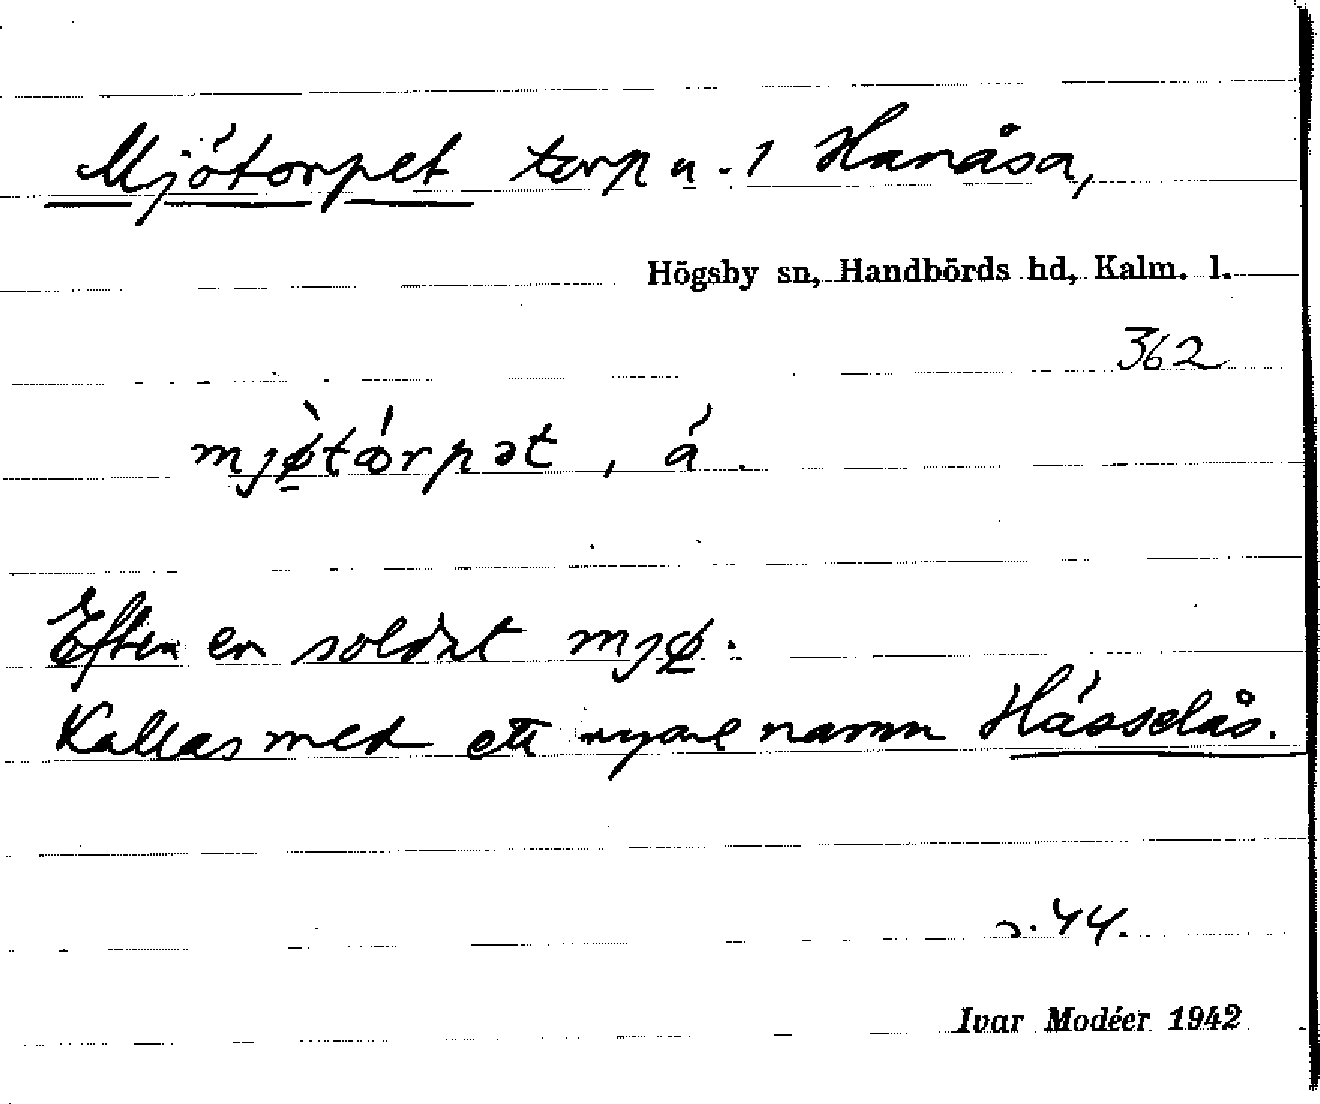 Mjötorpet torp u. 1 Hanåsa,
Högsby sn, Handbörds hd, Kalm. l.
362
mjø̱̀tǿrpət, á.
Efter en soldat mjø̱.
Kallas med ett nyare namn Hässelås.
s. 44.
Ivar Modéer 1942